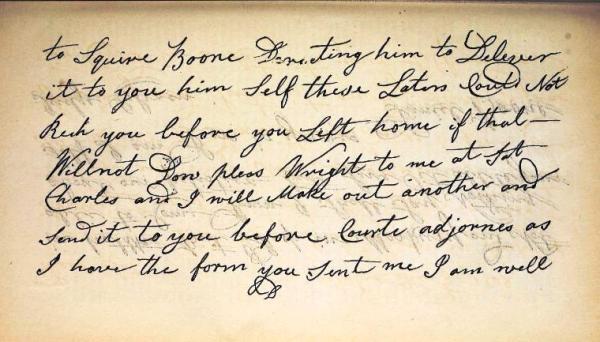 to Squire Boone Directing him to Delever
it to you him Self these Laters Could Not
Rech you before you Left home if that —
Willnot Dow pless Wright to me at Sat
Charles and I will Make out another and
Send it to you before Courte adjornes as
I have the form you Sent me I am well